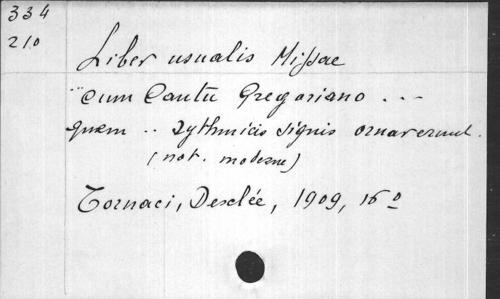 334
210
Liber usualis Missae
... cum Cantu Gregoriano ...
quem .. rythmicis signis ornaverunt.
(not. moderne)
Tornaci, Desclée, 1909, 16º